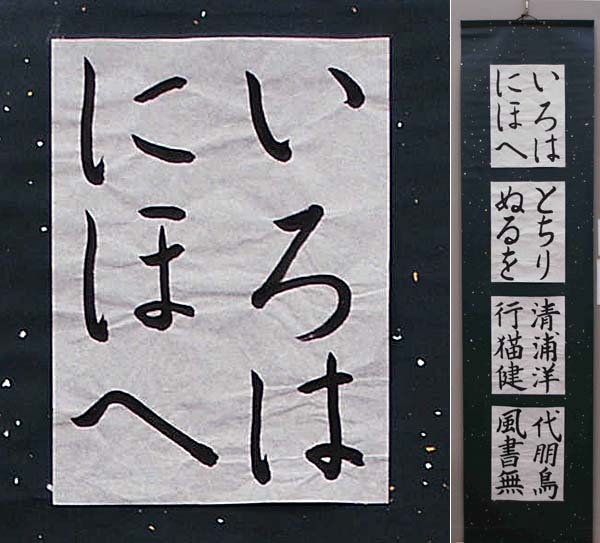 いろは
にほへ
いろは
にほへ
とちり
ぬるを
清浦洋
行猫健
代朋鳥
風書無